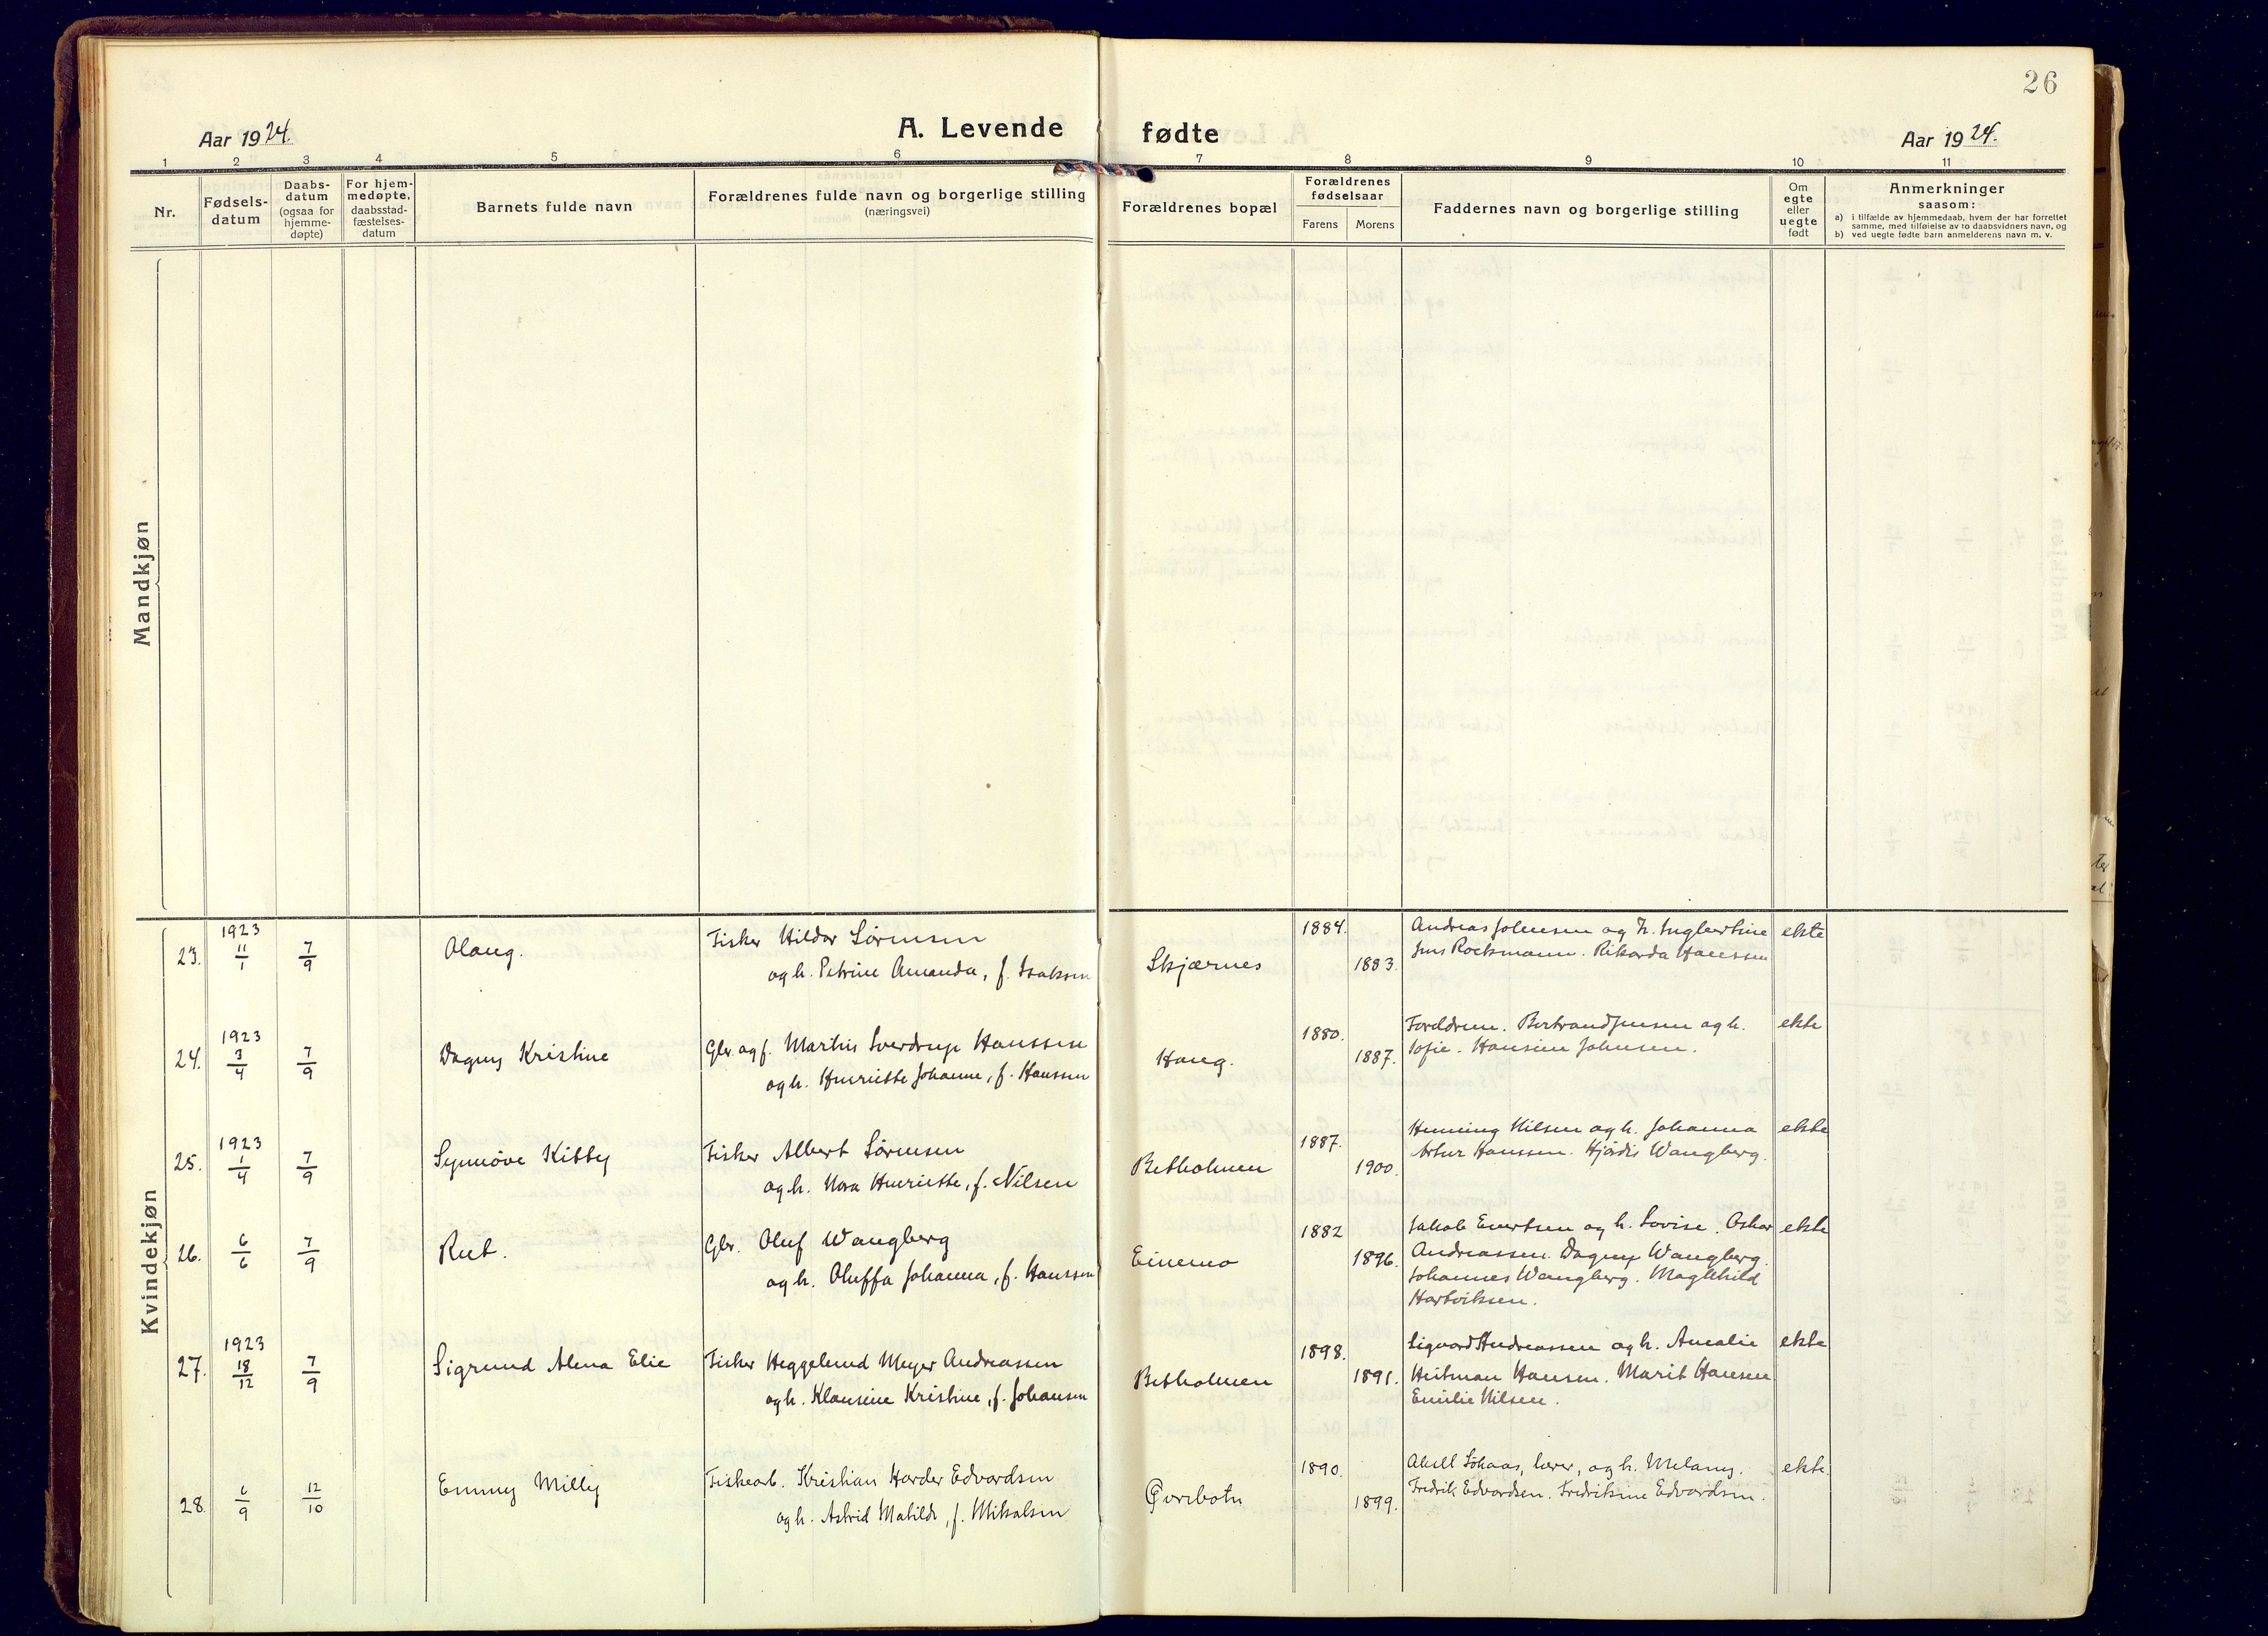 26
A. Levende fødte
Aar 1924. Aar 1924.
1 2 3 4 5 6 7 8 9 10 11
Nr.
Fødsels-
datum
Daabs-
datum
(ogsaa for
hjemme-
døpte)
For hjem-
medøpte,
daabsstad-
fæstelses-
datum
Barnets fulde navn
Forældrenes fulde navn og borgerlige stilling
(næringsvei)
Forældrenes bopæl
Forældrenes
fødselsaar
Farens Morens
Faddernes navn og borgerlige stilling
Om
egte
eller
uegte
født
Anmerkninger
saasom:
a) i tilfælde av hjemmedaab, hvem der har forrettet
samme, med tilføielse av to daabsvidners navn, og
b) ved uegte fødte barn anmelderens navn m. v.
Mandkjøn
Kvindekjøn
1923
23. 11/1 7/9 Olaug. Fisker Hildor Sørensen
og h. Petrine Amanda, f. Isaksen
Skjærnes
1884.
1883.
Andreas Johnsen og h. Ingbertine
Jens Rockmann. Rikarda Hanssen
ekte
1923
24. 3/4 7/9 Dagny Kristine Gbr. og f. Martin Sverdrup Hanssen
og h. Henriette Johanne, f. Hanssen
Haug.
1880.
1887.
Foreldrene. Bertrand Jensen og h.
Sofie. Hansine Johnsen.
ekte
1923
25. 1/4 7/9 Synnøve Kitty Fisker Albert Sørensen
og h. Nora Henriette, f. Nilsen
Betholmen
1887.
1900.
Henning Nilsen og h. Johanna
Artur Hanssen. Hjørdis Wangberg.
ekte
26. 6/6 7/9 Rut. Gbr. Oluf Wangberg
og h. Oluffa Johanna, f. Hanssen
Einemo
1882
1896.
Jakob Evertsen og h. Lovise. Oskar
Andreassen. Dagny Wangberg.
Johannes Wangberg. Maghild
Hartviksen.
ekte
1923
27. 18/12 7/9 Sigrund Alena Elie Fisker Heggelund Meyer Andreassen
og h. Klausine Kristine, f. Johansen
Betholmen
1898.
1891.
Sigvard Andreassen og h. Amalie
Heitman Hansen. Marit Hansen
Emilie Nilsen.
ekte
28. 6/9 12/10 Emmy Milly Fiskearb. Kristian Harder Edvardsen
og h. Astrid Matilde, f. Mikalsen
1890.
1899.
Aksell Schaas, lærer, og h. Melany.
Fredrik Edvardsen. Fredrikine Edvardsen.
ekte.